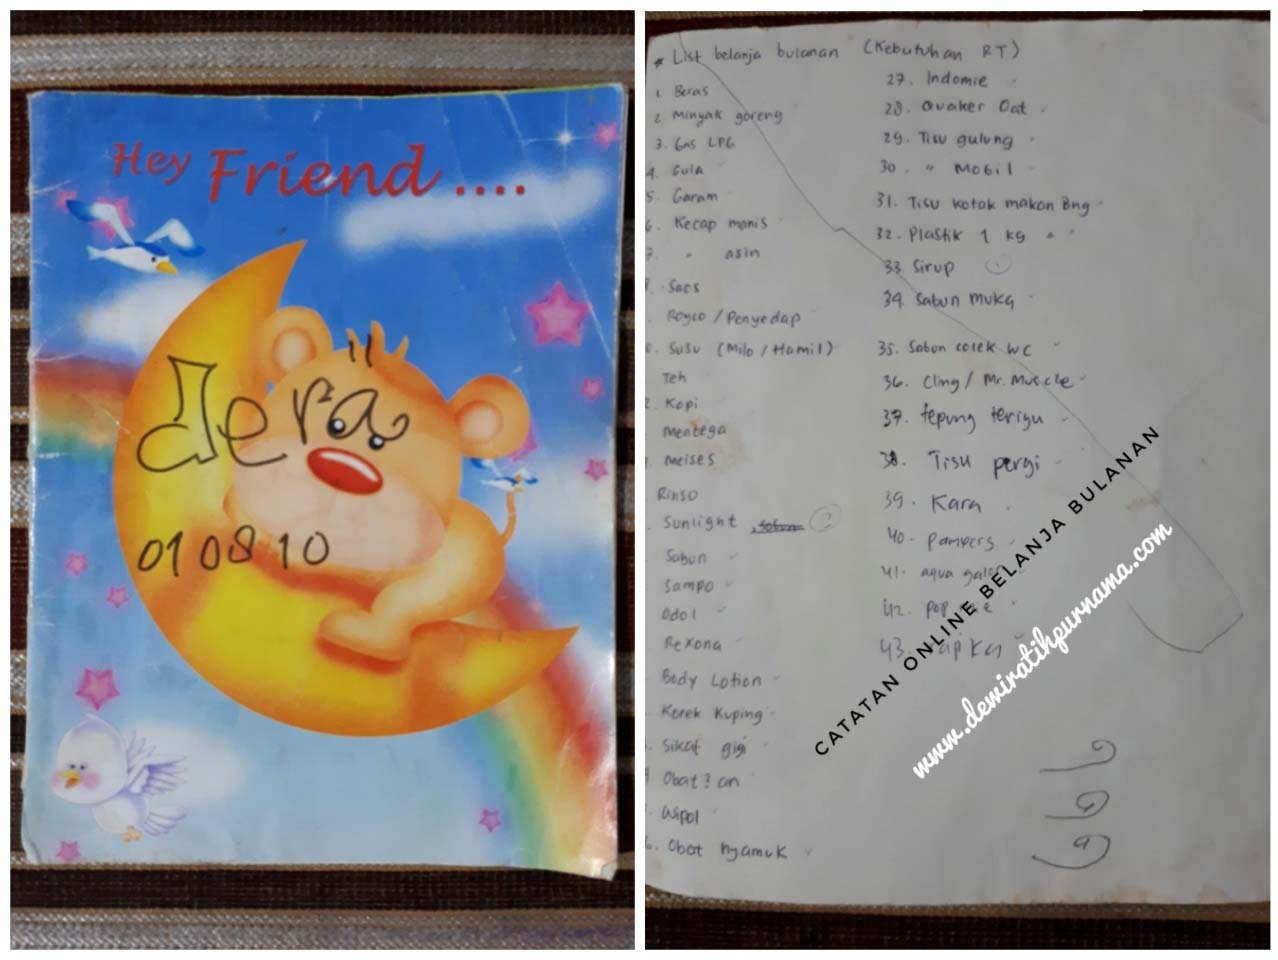 Hey Friend ....
dera
010810
* List belanja bulanan (Kebutuhan RT)
1. Beras
2. Minyak goreng
3. Gas LPG
4. Gula
5. Garam
6. Kecap manis
7. " asin
8. Saos
Royco / Penyedap
0. Susu (Milo / Hamil)
Teh
2. Kopi
Mentega
Meises
Rinso
Sunlight sabun
Sabun
Sampo
Odol
Rexona
Body Lotion
Korek Kuping
Sikat gigi
Obat2an
Wipol
6. Obat nyamuk
27. Indomie
28. Quaker Oat
29. Tisu gulung
30. " Mobil
31. Tisu kotak makan Bng
32. Plastik 1 kg
33. Sirup
34. Sabun muka
35. Sabun colek WC
36. Cling / Mr. Muscle
37. tepung terigu
38. Tisu pergi
39. Kara
40. pampers
41. aqua galon
42.
43.
CATATAN ONLINE BELANJA BULANAN
www.dewiratihpurnama.com